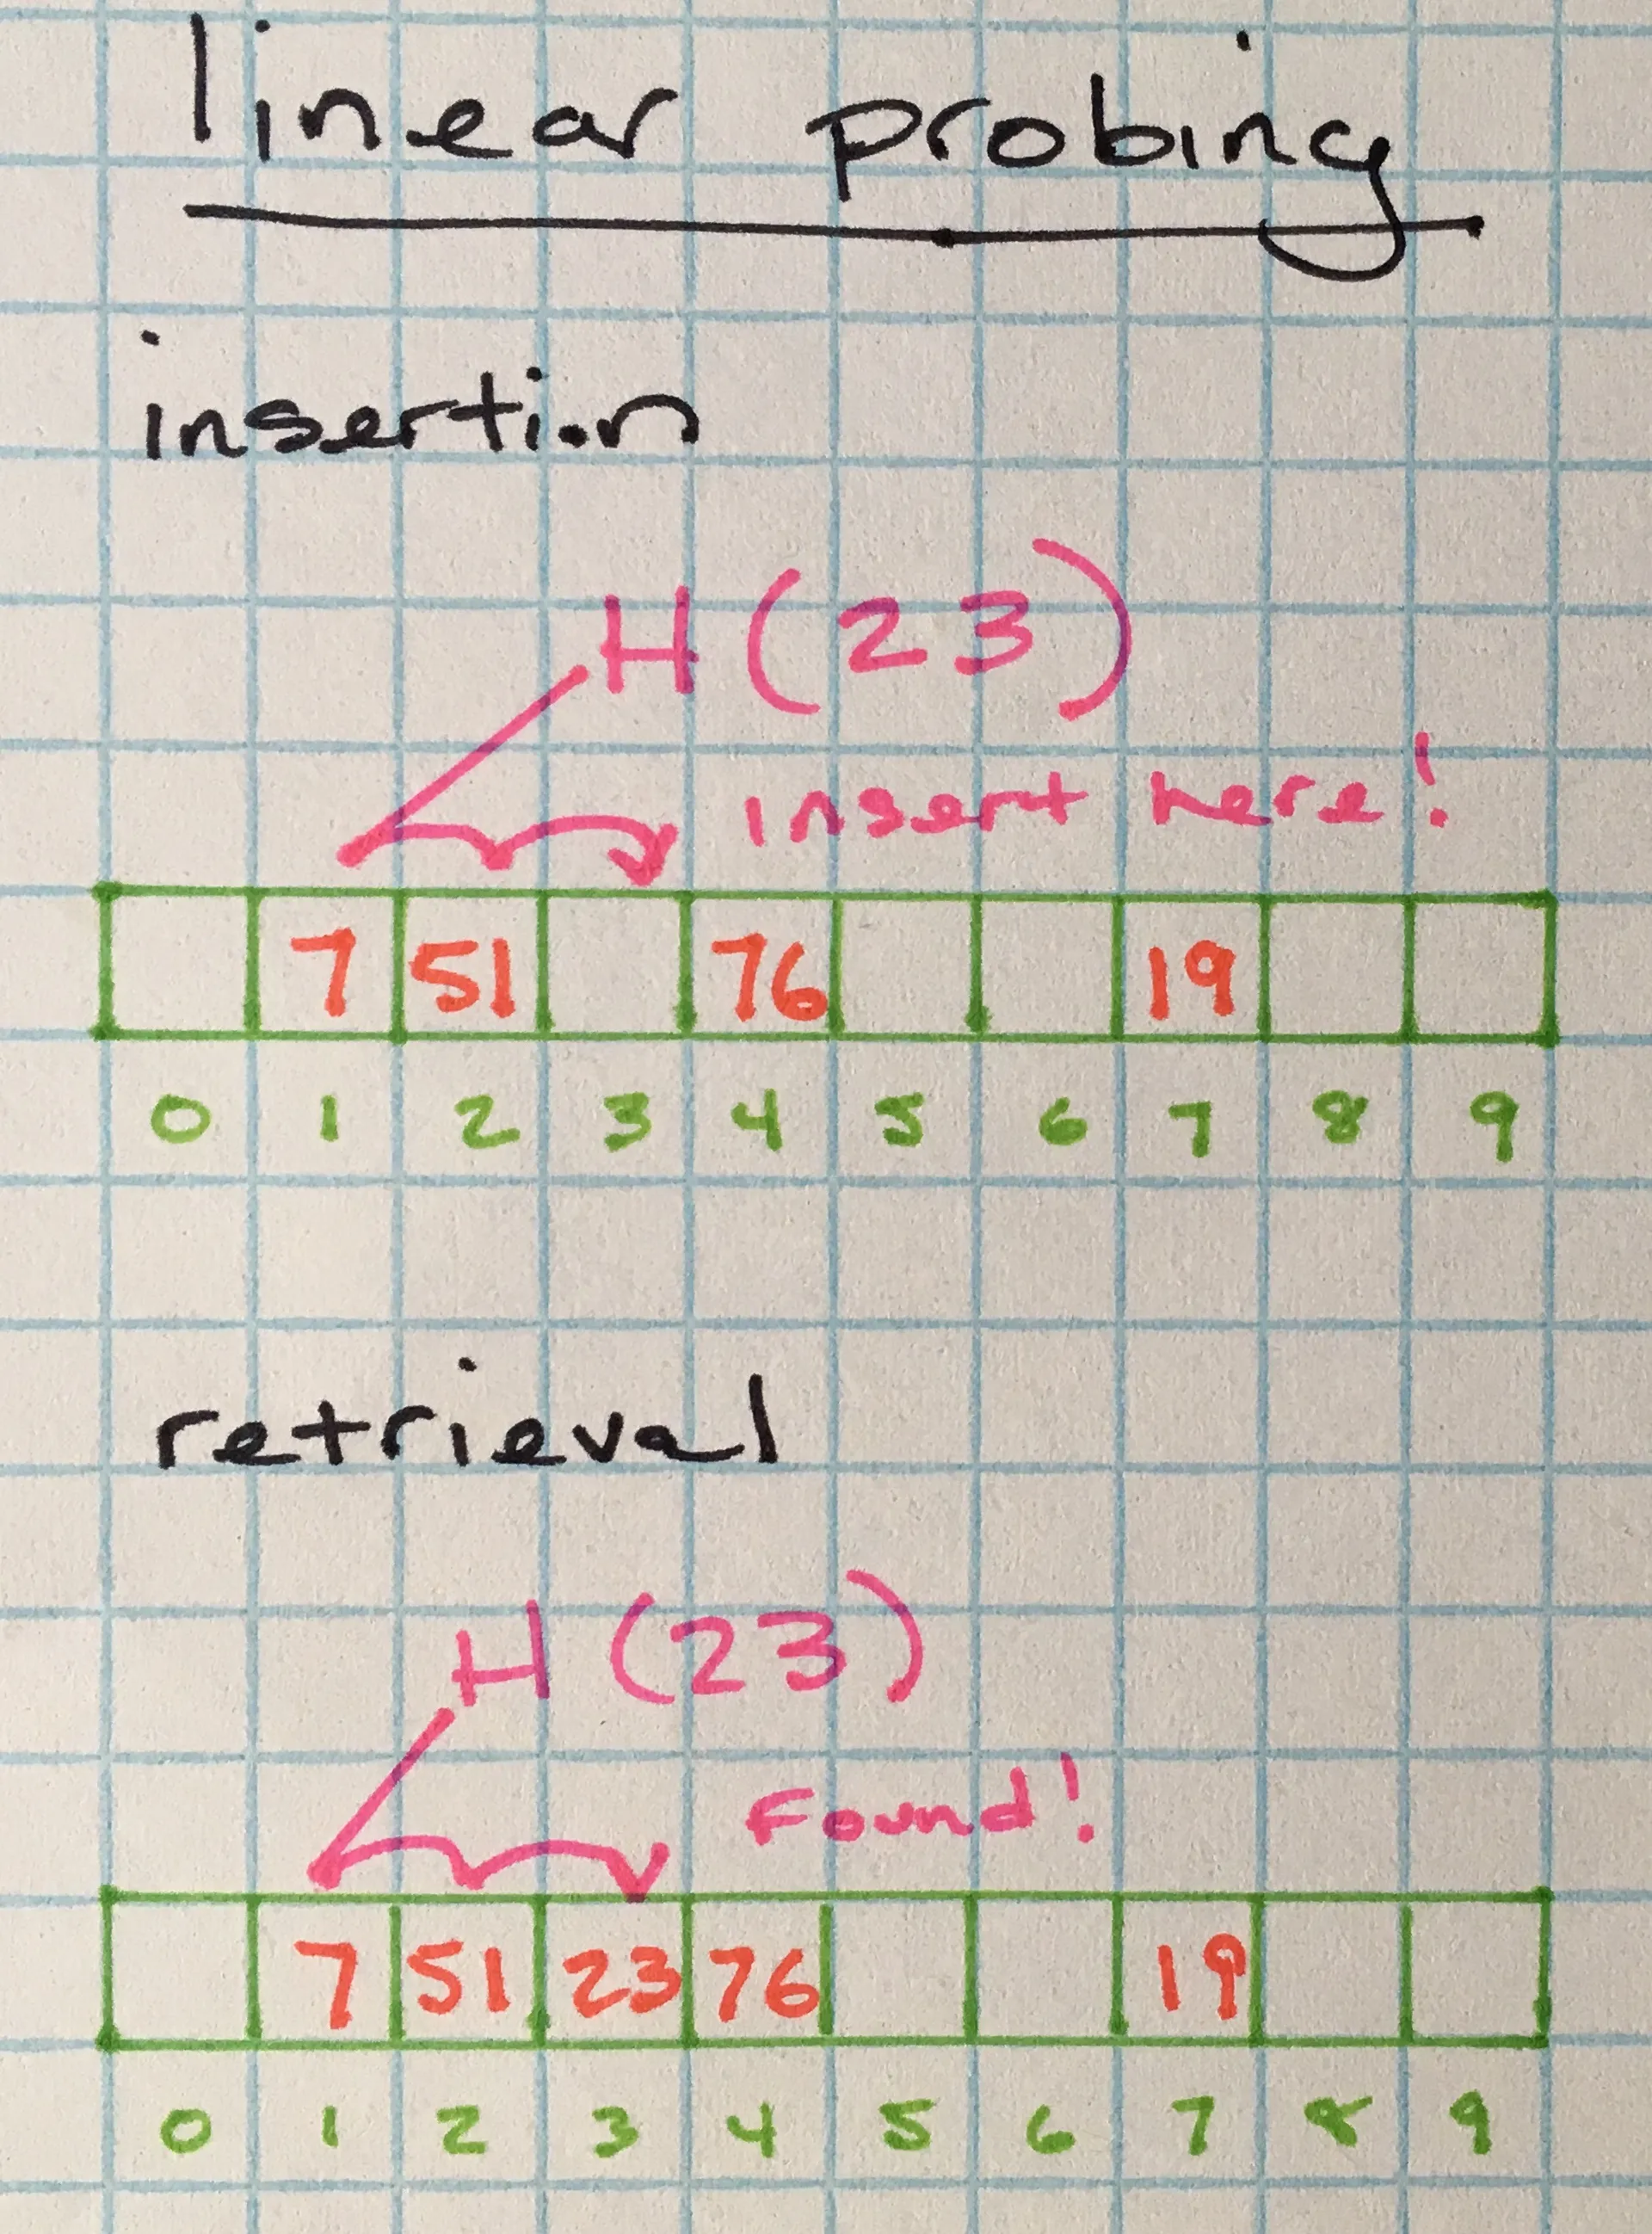 linear probing
insertion
H(23)
insert here!
7 51 76 19
0 1 2 3 4 5 6 7 8 9
retrieval
H(23)
Found!
7 51 23 76 19
0 1 2 3 4 5 6 7 8 9